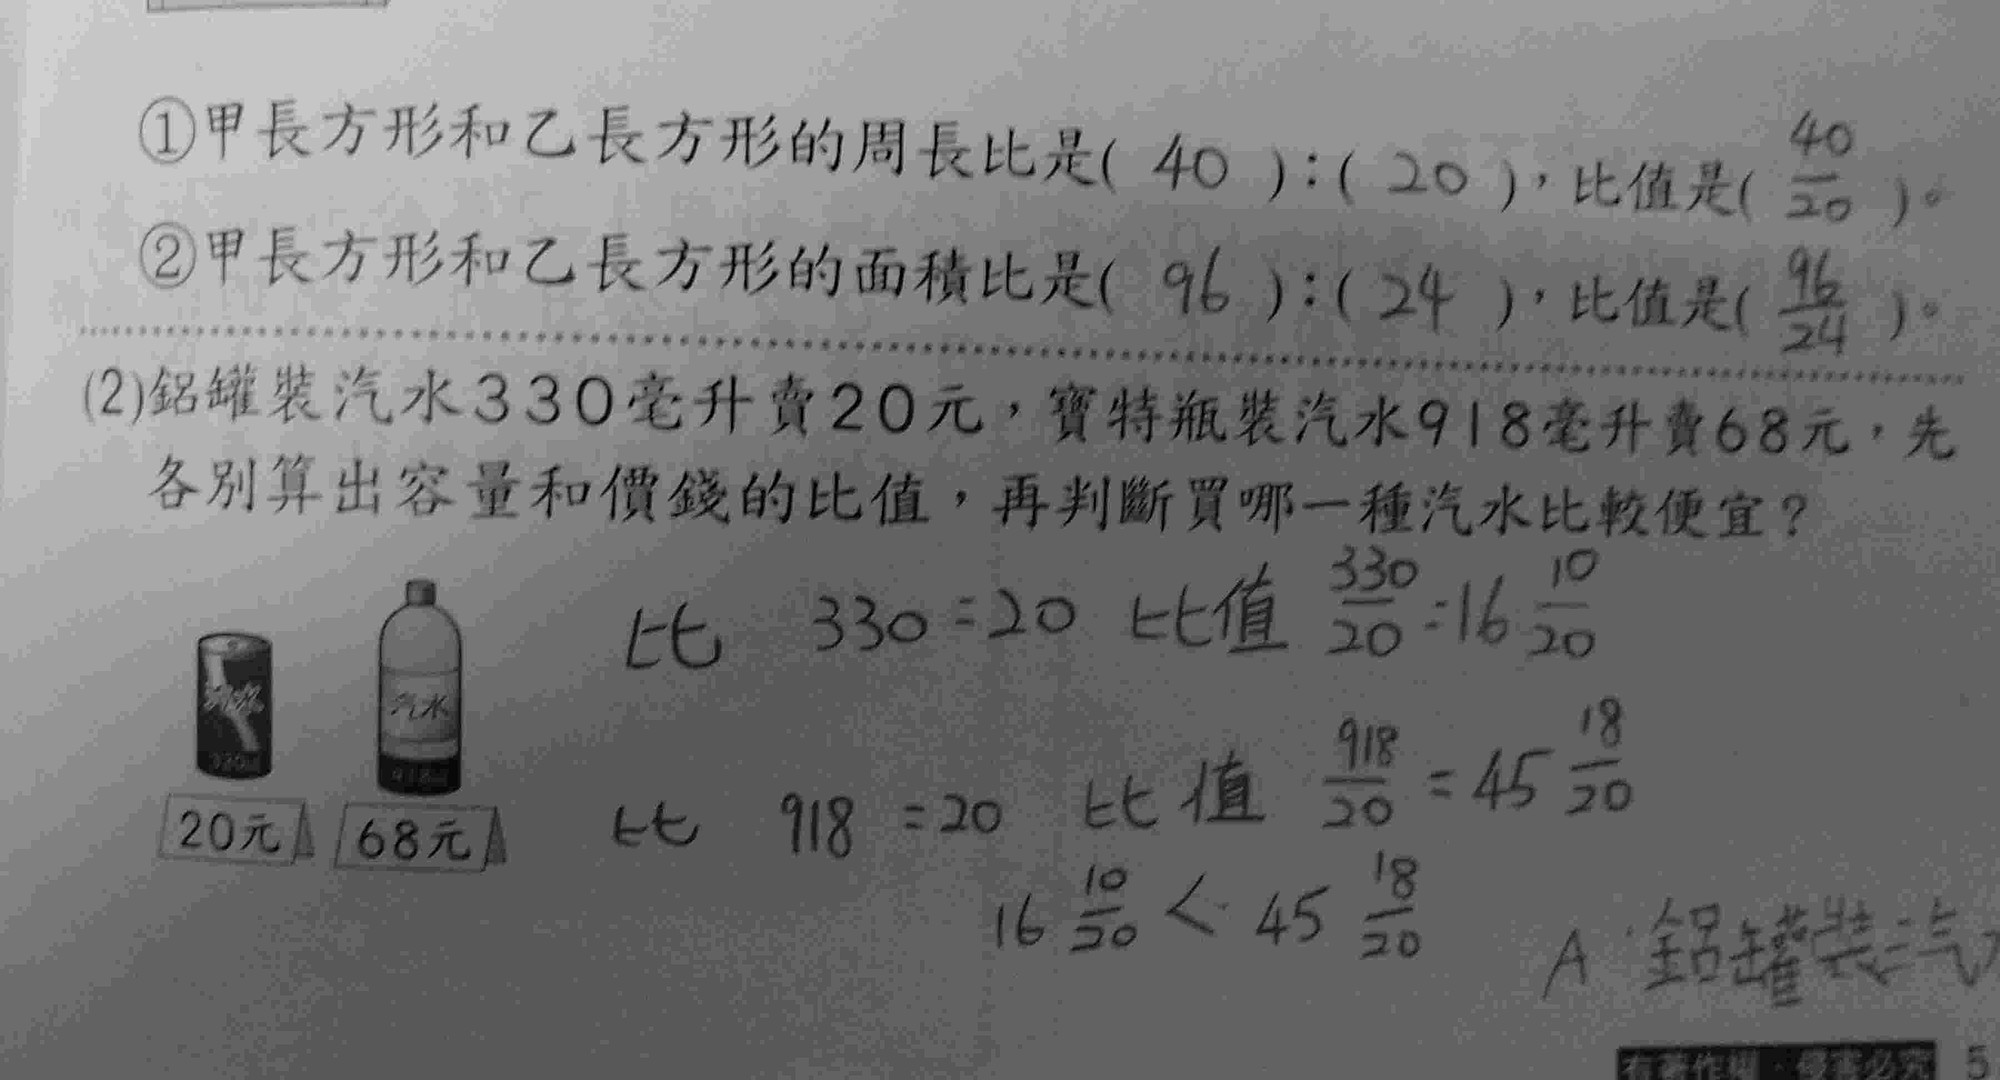 ①甲長方形和乙長方形的周長比是( 40 ):( 20 ),比值是( 40/20 )。
②甲長方形和乙長方形的面積比是( 96 ):( 24 ),比值是( 96/24 )。
(2)鋁罐裝汽水330毫升賣20元,寶特瓶裝汽水918毫升賣68元,先
各別算出容量和價錢的比值,再判斷買哪一種汽水比較便宜?
比 330=20 比值 330/20=16 10/20
汽水
汽水
330ml
918ml
20元
68元
比 918=20 比值 918/20=45 18/20
16 10/20 < 45 18/20
A:鋁罐裝汽
有著作權・侵害必究 5